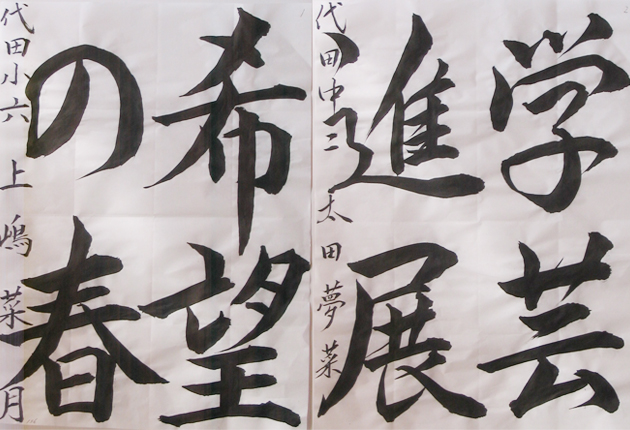 学芸
進展
代田中二 太田夢菜
希望
の春
代田小六 上嶋菜月